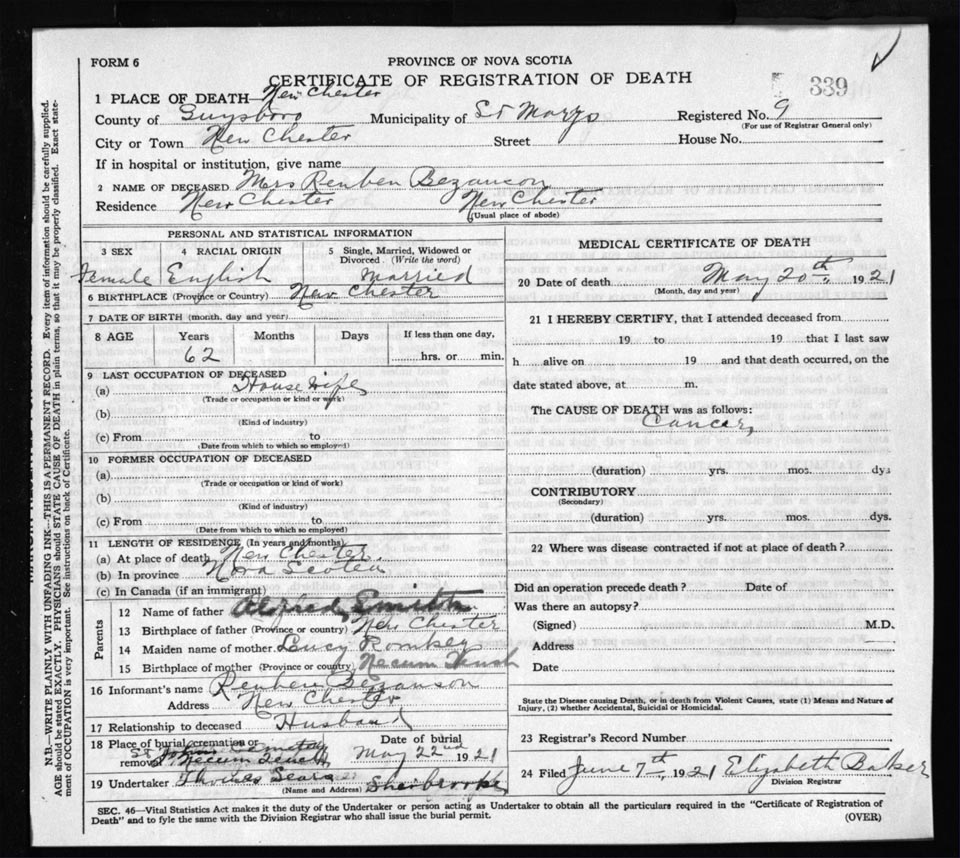 FORM 6
PROVINCE OF NOVA SCOTIA
CERTIFICATE OF REGISTRATION OF DEATH
339
1 PLACE OF DEATH— New Chester
County of Guysboro Municipality of St Marys Registered No. 9
(For use of Registrar General only)
City or Town New Chester Street House No.
If in hospital or institution, give name
2 NAME OF DECEASED Mrs Reuben Bezanson
Residence New Chester New Chester
(Usual place of abode)
PERSONAL AND STATISTICAL INFORMATION
3 SEX 4 RACIAL ORIGIN 5 Single, Married, Widowed or Divorced. (Write the word)
Female English Married
6 BIRTHPLACE (Province or Country) New Chester
7 DATE OF BIRTH (month, day and year)
8 AGE Years Months Days If less than one day,
62 hrs. or min.
9 LAST OCCUPATION OF DECEASED
(a) House wife
(Trade or occupation or kind or work)
(b)
(Kind of industry)
(c) From to
(Date from which to which so employed)
10 FORMER OCCUPATION OF DECEASED
(a)
(Trade or occupation or kind of work)
(b)
(Kind of industry)
(c) From to
(Date from which to which so employed)
11 LENGTH OF RESIDENCE (In years and months)
(a) At place of death New Chester
(b) In province Nova Scotia
(c) In Canada (if an immigrant)
Parents
12 Name of father Alfred Smith
13 Birthplace of father (Province or country) New Chester
14 Maiden name of mother Lucy Romkey
15 Birthplace of mother (Province or country) Necum Teuch
16 Informant's name Reuben Bezanson
Address New Chester
17 Relationship to deceased Husband
18 Place of burial, cremation or removal Necum Teuch Date of burial May 22nd 1921
19 Undertaker Thomas Sears Sherbrooke
(Name and Address)
MEDICAL CERTIFICATE OF DEATH
20 Date of death May 20th, 1921
(Month, day and year)
21 I HEREBY CERTIFY, that I attended deceased from
19 to 19 that I last saw
h alive on 19 and that death occurred, on the
date stated above, at m.
The CAUSE OF DEATH was as follows:
Cancer
(duration) yrs. mos. dys
CONTRIBUTORY
(Secondary)
(duration) yrs. mos. dys.
22 Where was disease contracted if not at place of death?
Did an operation precede death? Date of
Was there an autopsy?
(Signed) M.D.
Address
Date
State the Disease causing Death, or in death from Violent Causes, state (1) Means and Nature of
Injury, (2) whether Accidental, Suicidal or Homicidal.
23 Registrar's Record Number
24 Filed June 7th, 1921 Elizabeth Balker
Division Registrar
SEC. 46—Vital Statistics Act makes it the duty of the Undertaker or person acting as Undertaker to obtain all the particulars required in the "Certificate of Registration of
Death" and to fyle the same with the Division Registrar who shall issue the burial permit.
(OVER)
N.B.—WRITE PLAINLY WITH UNFADING INK—THIS IS A PERMANENT RECORD. Every item of information should be carefully supplied.
AGE should be stated EXACTLY. PHYSICIANS should STATE CAUSE OF DEATH in plain terms, so that it may be properly classified. Exact state-
ment of OCCUPATION is very important. See instructions on back of Certificate.